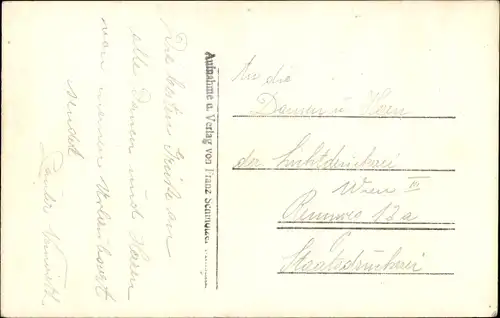 Die besten Grüße an
alle Damen und Herren
von meinem Urlaubsort
sendet
Aufnahme u. Verlag von Franz
An die
Damen u Herren
der Lichtdruckerei
Wien III
Rennweg 12a
Staatsdruckerei